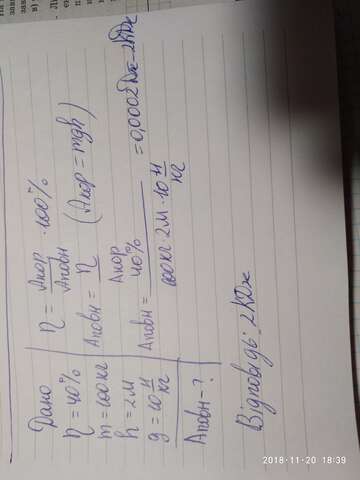 Дано
η = 40%
m = 100 кг
h = 2 м
g = 10 Н/кг
Aповн - ?
η = Aкор / Aповн · 100%
Aповн = Aкор / η (Aкор = mgh)
Aповн = Aкор / 40%
100 кг · 2 м · 10 Н/кг = 0,0002 Дж = 2 кДж
Відповідь: 2 кДж
2018-11-20 18:39